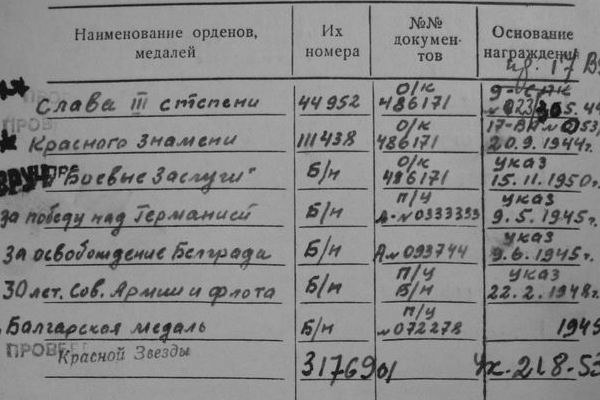 Наименование орденов, медалей Их номера №№ докумен- тов Основание награждения
пр. 17 ВА
Слава III степени 44952 О/к 486171
Красного Знамени 111438 О/к 486171 17-ВА № 20.9.1944г.
"Боевые Заслуги" Б/н О/к 486171 указ 15.11.1950г.
За победу над Германией Б/н П/у А-№0333393 указ 9.5.1945г.
За освобождение Белграда Б/н А№093744 указ 9.6.1945г.
30 лет. Сов. Армии и флота Б/н П/у Б/н указ 22.2.1948г.
Балгарская медаль Б/н П/у №072278 1945
ПРОВЕ
Красной Звезды 3176901 Ук. 218-53